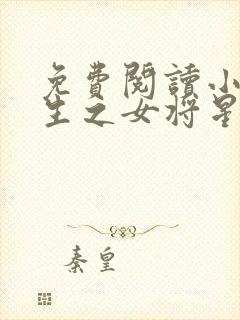 免費閱讀小
生之女將星
秦皇